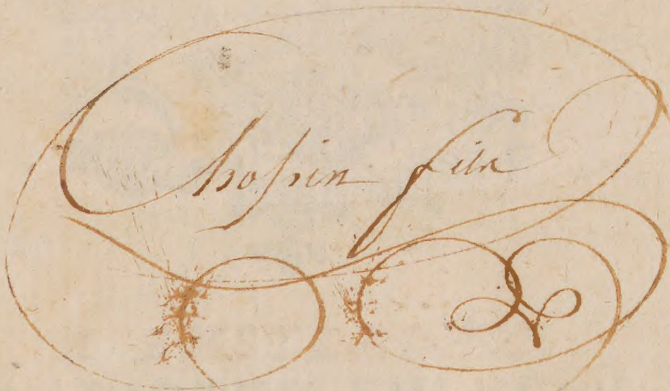 Chopin fils